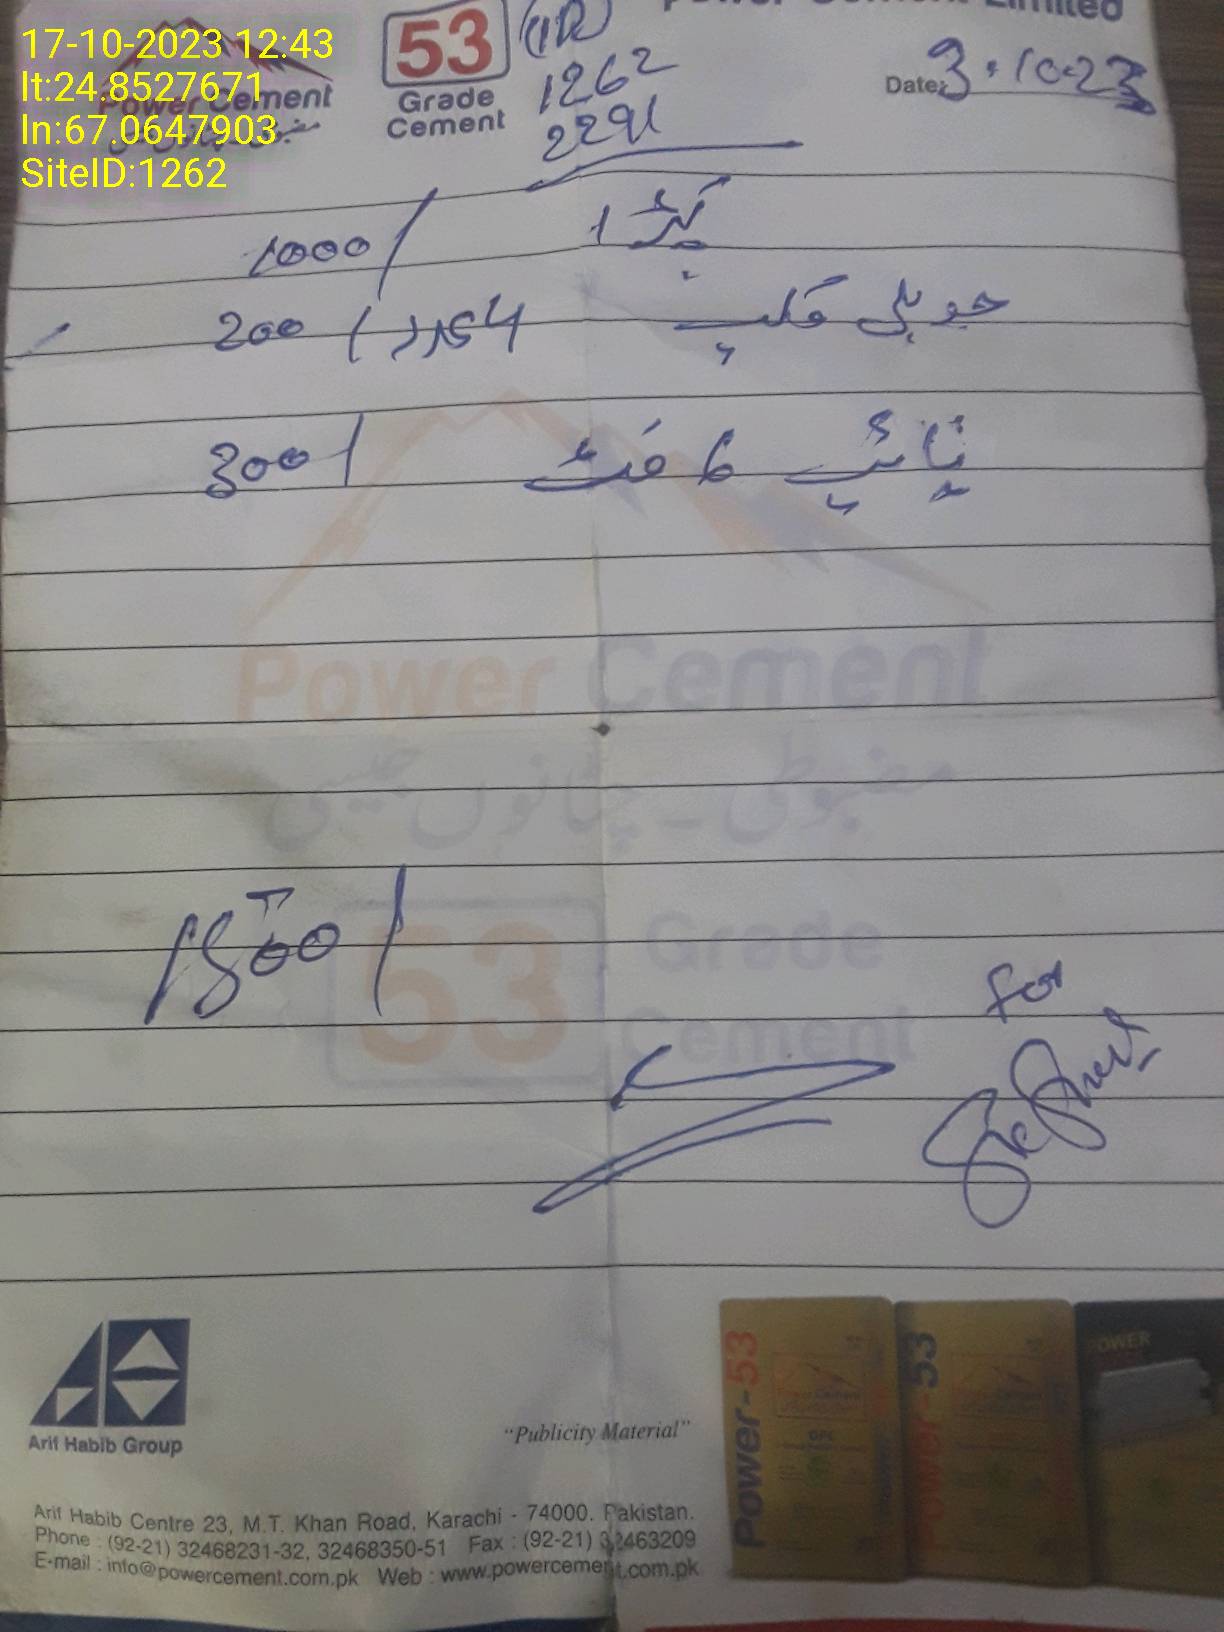 Power Cement Limited
17-10-2023 12:43
lt:24.8527671
ln:67.0647903
SiteID:1262
Power Cement
53
Grade
Cement
1262
2291
Date: 3.10.23
1 1000/
200/
پائپ 6 فٹ 300/
Power Cement
مضبوطی ـ چٹانوں جیسی
53 Grade
Cement
1500/
for
Arif Habib Group
"Publicity Material"
Power-53
Power-53
POWER
Arif Habib Centre 23, M.T. Khan Road, Karachi - 74000. Pakistan.
Phone : (92-21) 32468231-32, 32468350-51 Fax : (92-21) 32463209
E-mail : info@powercement.com.pk Web : www.powercement.com.pk